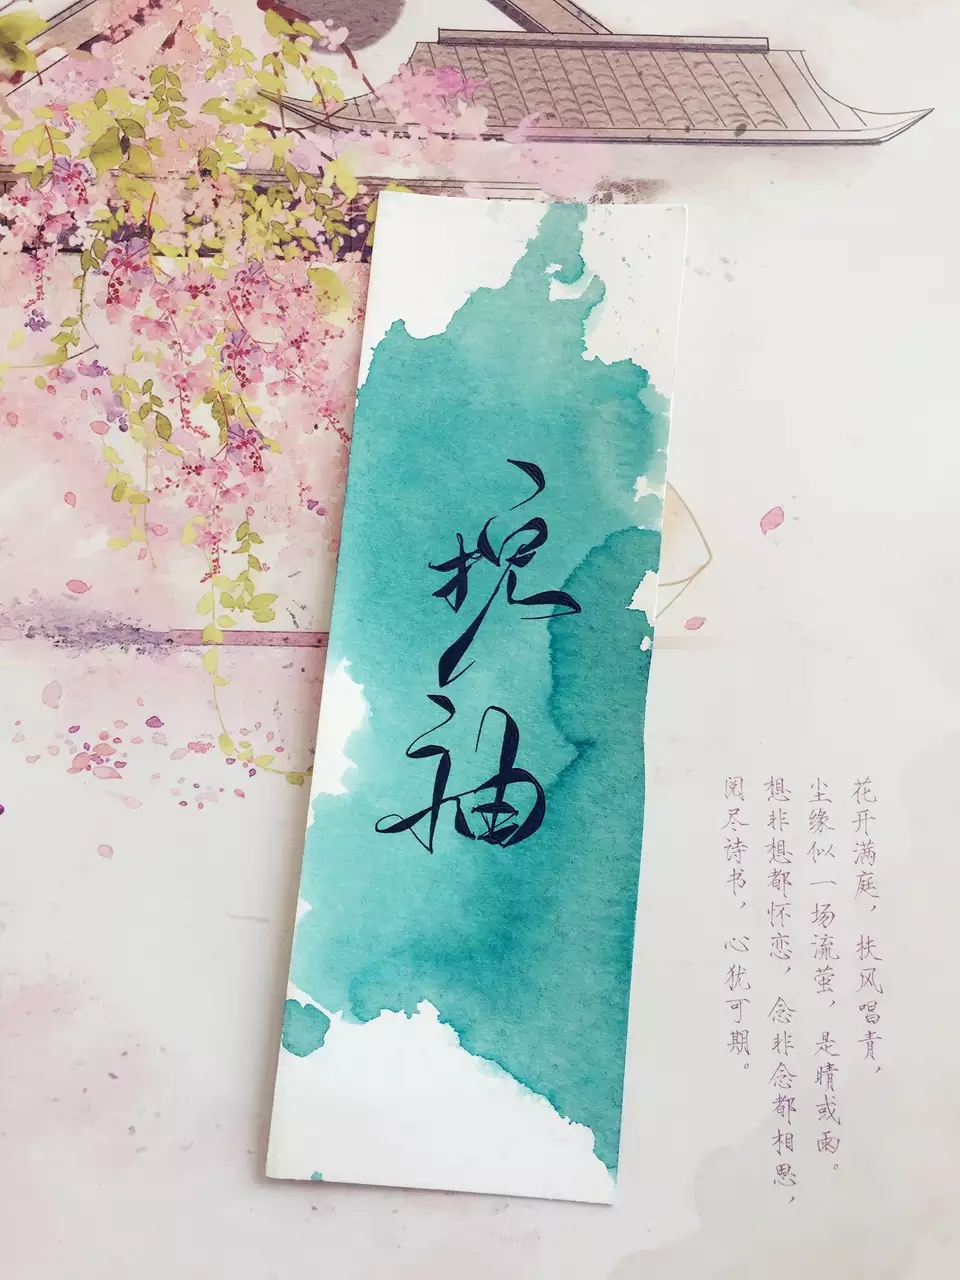 挽袖
花开满庭，扶风唱青，
尘缘似一场流萤，是晴或雨。
想非想都怀恋，念非念都相思，
阅尽诗书，心犹可期。